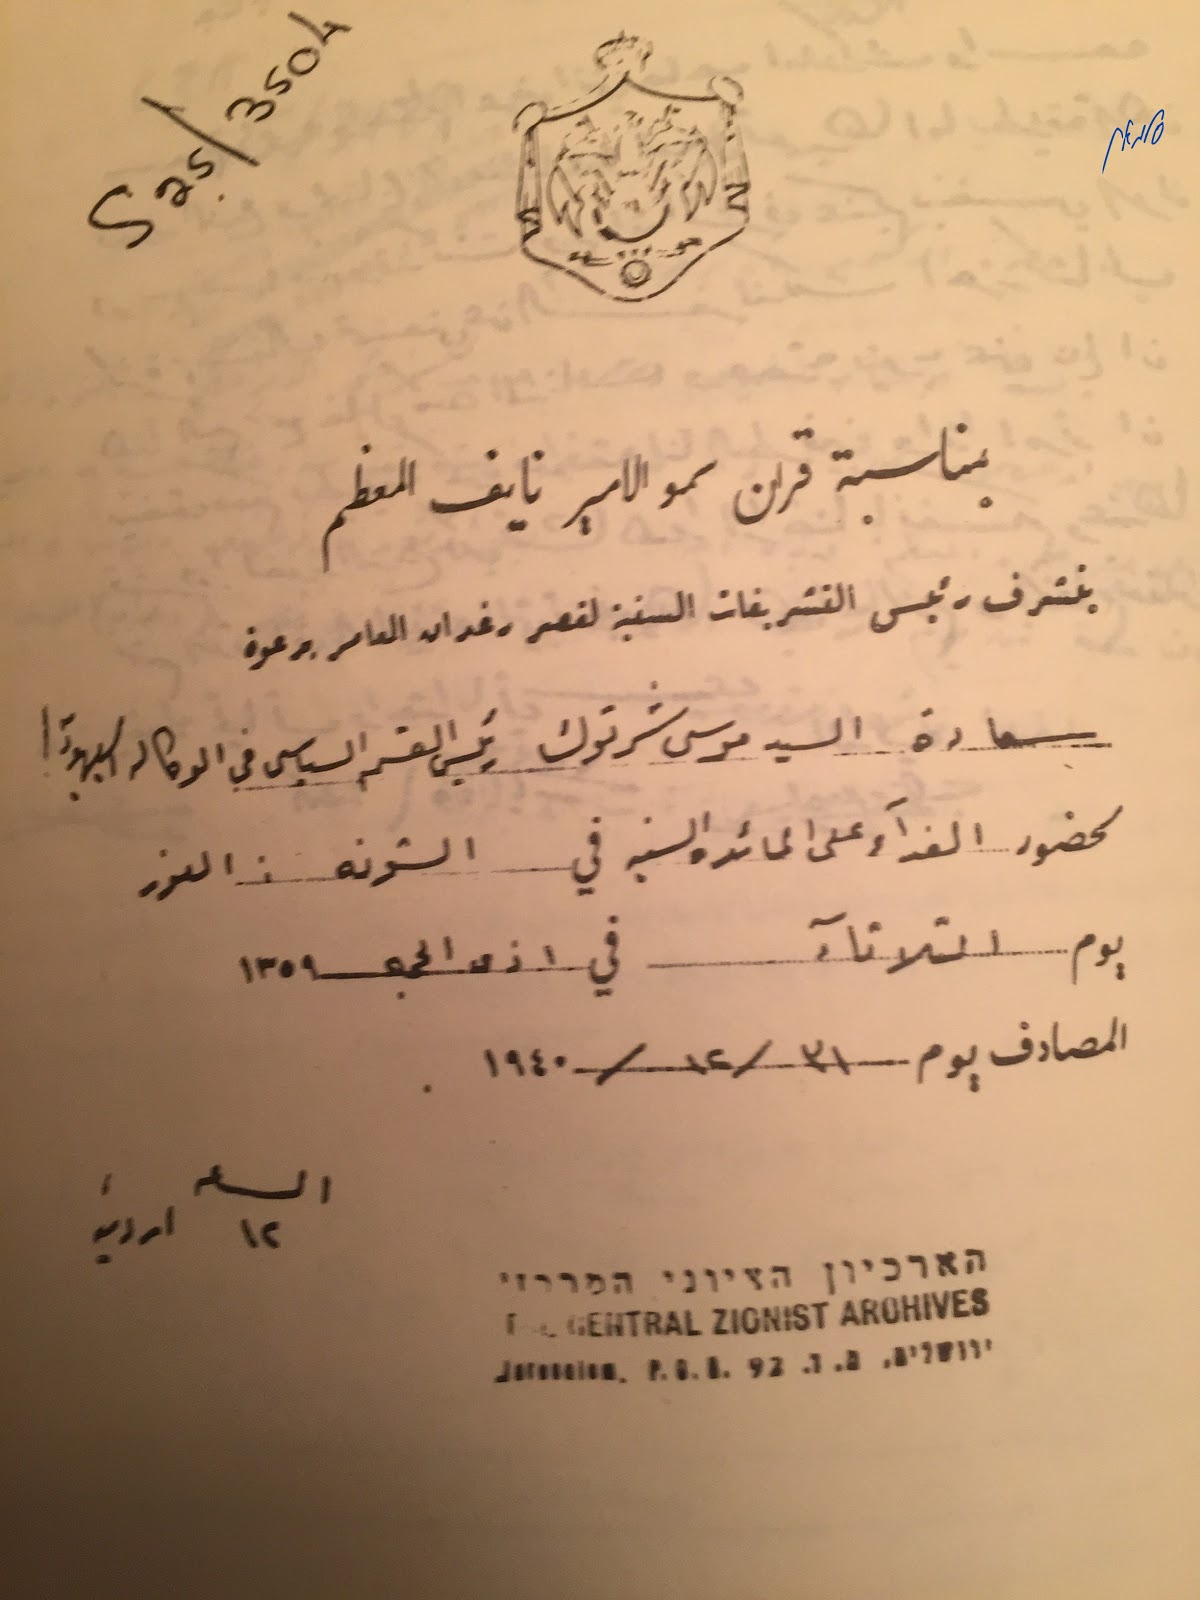 S25/3504
بمناسبة قران سمو الامير نايف المعظم
يتشرف رئيس التشريفات السنية لقصر رغدان العامر بدعوة
سعادة السيد موسى شرتوك رئيس القسم السياسي في الوكاله اليهودية
لحضور الغدآء على المائده السنيه في الشونه
يوم الثلاثآء في ١ ذى الحجه ١٣٥٩
المصادف يوم ٣١/١٢/١٩٤٠
الساعه
١٢
הארכיון הציוני המרכזי
THE CENTRAL ZIONIST ARCHIVES
Jerusalem, P.O.B. 92 ת.ד. ירושלים,